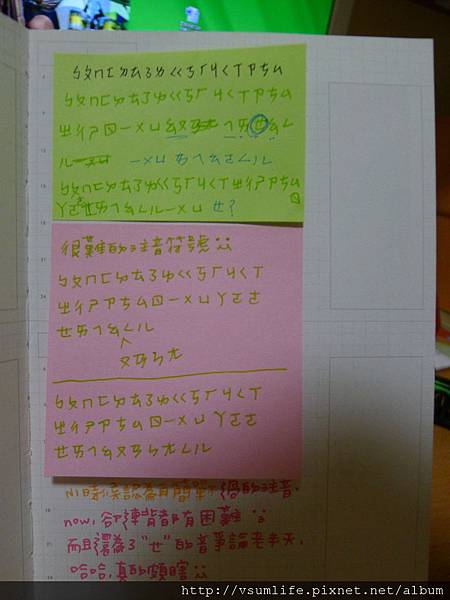 ㄅㄆㄇㄈㄉㄊㄋㄌㄍㄎㄏㄐㄑㄒㄗㄘㄙ
ㄅㄆㄇㄈㄉㄊㄋㄌㄍㄎㄏㄐㄑㄒㄗㄘㄙ
ㄓㄔㄕㄖㄧㄨㄩㄠㄡ ㄟㄞㄝㄥ
ㄦ ㄧㄨㄩ ㄞㄟㄠㄛㄥㄦ
ㄅㄆㄇㄈㄉㄊㄋㄌㄍㄎㄏㄐㄑㄒㄓㄔㄕㄗㄘㄙ
ㄖ
ㄚㄛㄜㄞㄟㄠㄥㄦㄧㄨㄩ ㄝ?
很難的注音符號
ㄅㄆㄇㄈㄉㄊㄋㄌㄍㄎㄏㄐㄑㄒ
ㄓㄔㄕㄗㄘㄙㄖㄧㄨㄩㄚㄛㄜ
ㄝㄞㄟㄠㄥㄦ
ㄡㄢㄣㄤ
ㄅㄆㄇㄈㄉㄊㄋㄌㄍㄎㄏㄐㄑㄒ
ㄓㄔㄕㄗㄘㄙㄖㄧㄨㄩㄚㄛㄜ
ㄝㄞㄟㄠㄡㄢㄣㄤㄥㄦ
小時候認為再簡單不過的注音,
now, 卻連背都有困難
而且還為了"ㄝ"的音爭論老半天,
哈哈,真的頗瞎
http://vsumlife.pixnet.net/album